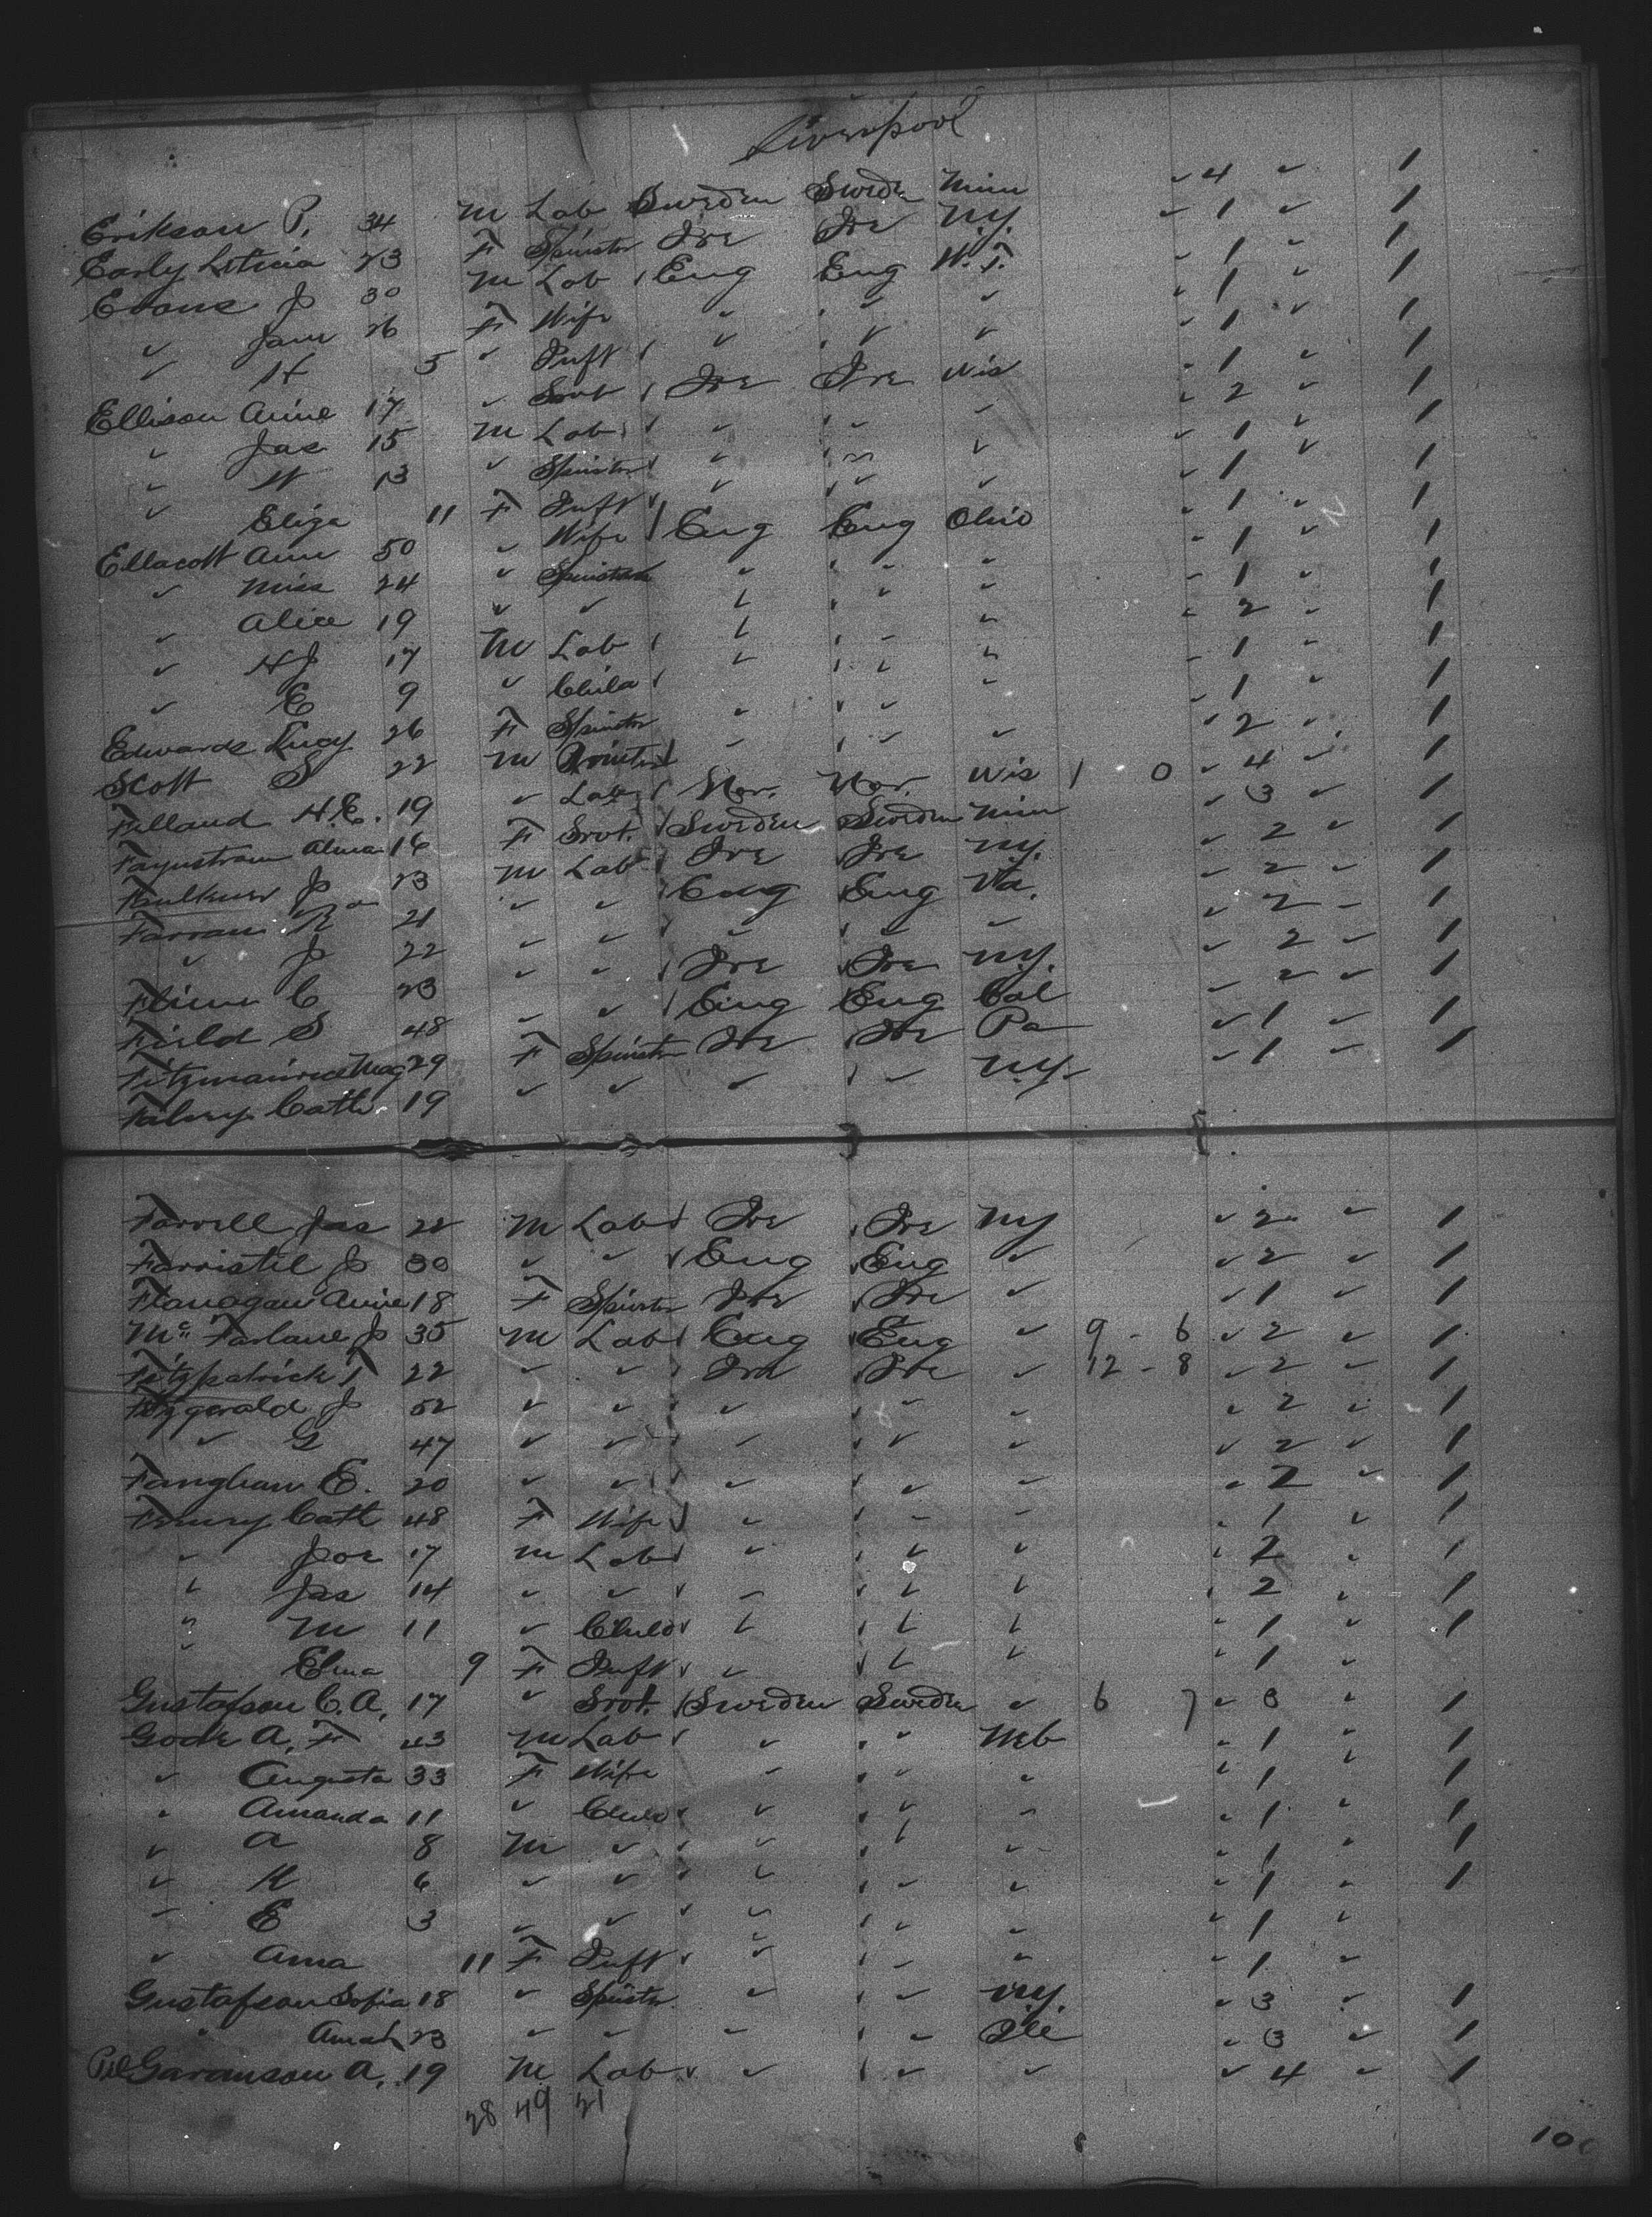 Liverpool
Erikson P. 34 M Lab Sweden Sweden Minn ✓ 4 ✓ 1
Early Leticia 23 F Spinster Ire Ire N.Y. ✓ 1 ✓ 1
Evans J 30 M Lab Eng Eng W.T. ✓ 1 ✓ 1
✓ Jane 26 F Wife ✓ ✓ ✓ ✓ 1 ✓ 1
✓ H 5 ✓ Inft ✓ ✓ ✓ ✓ 1 ✓ 1
Ellison Anne 17 ✓ Srvt Ire Ire Wis ✓ 1 ✓ 1
✓ Jas 15 M Lab ✓ ✓ ✓ ✓ 2 ✓ 1
✓ W 13 ✓ Spinster ✓ ✓ ✓ ✓ 1 ✓ 1
✓ Eliza 11 F Inft ✓ ✓ ✓ ✓ 1 ✓ 1
Ellacott Ann 50 ✓ Wife Eng Eng Ohio ✓ 1 ✓ 1
✓ Miss 24 ✓ Spinster ✓ ✓ ✓ ✓ 1 ✓ 1
✓ Alice 19 ✓ ✓ ✓ ✓ ✓ ✓ 1 ✓ 1
✓ HJ 17 M Lab ✓ ✓ ✓ ✓ 2 ✓ 1
✓ E 9 ✓ Child ✓ ✓ ✓ ✓ 1 ✓ 1
Edwards Lucy 26 F Spinster ✓ ✓ ✓ ✓ 1 ✓ 1
Scott S 22 M Printer ✓ ✓ ✓ ✓ 2 ✓ 1
Felland H.E. 19 ✓ Lab Nor. Nor. Wis 1 - 0 ✓ 4 ✓ 1
Alma 16 F Srvt. Sweden Sweden Minn ✓ 3 ✓ 1
Faulkner J 23 M Lab Ire Ire N.Y. ✓ 2 ✓ 1
Farran 21 ✓ ✓ Eng Eng Va. ✓ 2 ✓ 1
✓ J 22 ✓ ✓ ✓ ✓ ✓ ✓ 2 - 1
C 23 ✓ ✓ Ire Ire N.Y. ✓ 2 ✓ 1
Field S 48 ✓ ✓ Eng Eng Cal ✓ 2 ✓ 1
Fitzmaurice Mag 29 F Spinster Ire Ire Pa ✓ 1 ✓ 1
Fahey Cath. 19 ✓ ✓ ✓ ✓ N.Y. ✓ 1 ✓ 1
Farrell Jas 22 M Lab Ire Ire NY ✓ 2 ✓ 1
Farristil J 30 ✓ ✓ Eng Eng ✓ ✓ 2 ✓ 1
Flanagan Annie 18 F Spinster Ire Ire ✓ ✓ 1 ✓ 1
Mc Farlane J 35 M Lab Eng Eng ✓ 9 - 6 ✓ 2 ✓ 1
Fitzpatrick T 22 ✓ ✓ Ire Ire ✓ 12 - 8 ✓ 2 ✓ 1
Fitzgerald J 52 ✓ ✓ ✓ ✓ ✓ ✓ 2 ✓ 1
✓ G 47 ✓ ✓ ✓ ✓ ✓ ✓ 2 ✓ 1
Fanghan E. 20 ✓ ✓ ✓ ✓ ✓ ✓ 2 ✓ 1
Cath 48 F Wife ✓ ✓ ✓ ✓ 1 ✓ 1
✓ Joe 17 M Lab ✓ ✓ ✓ ✓ 2 ✓ 1
✓ Jas 14 ✓ ✓ ✓ ✓ ✓ ✓ 2 ✓ 1
✓ M 11 ✓ Child ✓ ✓ ✓ ✓ 1 ✓ 1
✓ Elma 9 F Inft ✓ ✓ ✓ ✓ 1 ✓
Gustafson C.A. 17 ✓ Srvt. Sweden Sweden ✓ 6 7 ✓ 3 ✓ 1
Gode A. F 43 M Lab ✓ ✓ Neb ✓ 1 ✓ 1
✓ Augusta 33 F Wife ✓ ✓ ✓ ✓ 1 ✓ 1
✓ Amanda 11 ✓ Child ✓ ✓ ✓ ✓ 1 ✓ 1
✓ A 8 M ✓ ✓ ✓ ✓ ✓ 1 ✓ 1
✓ K 6 ✓ ✓ ✓ ✓ ✓ ✓ 1 ✓ 1
✓ E 3 ✓ ✓ ✓ ✓ ✓ ✓ 1 ✓
✓ Anna 11 F Inft ✓ ✓ ✓ ✓ 1 ✓
Gustafson Sofia 18 ✓ Spinster ✓ ✓ N.Y. ✓ 3 ✓ 1
✓ 23 ✓ ✓ ✓ ✓ Ill ✓ 3 ✓ 1
Garanson A. 19 M Lab ✓ ✓ ✓ ✓ 4 ✓ 1
28 49 21